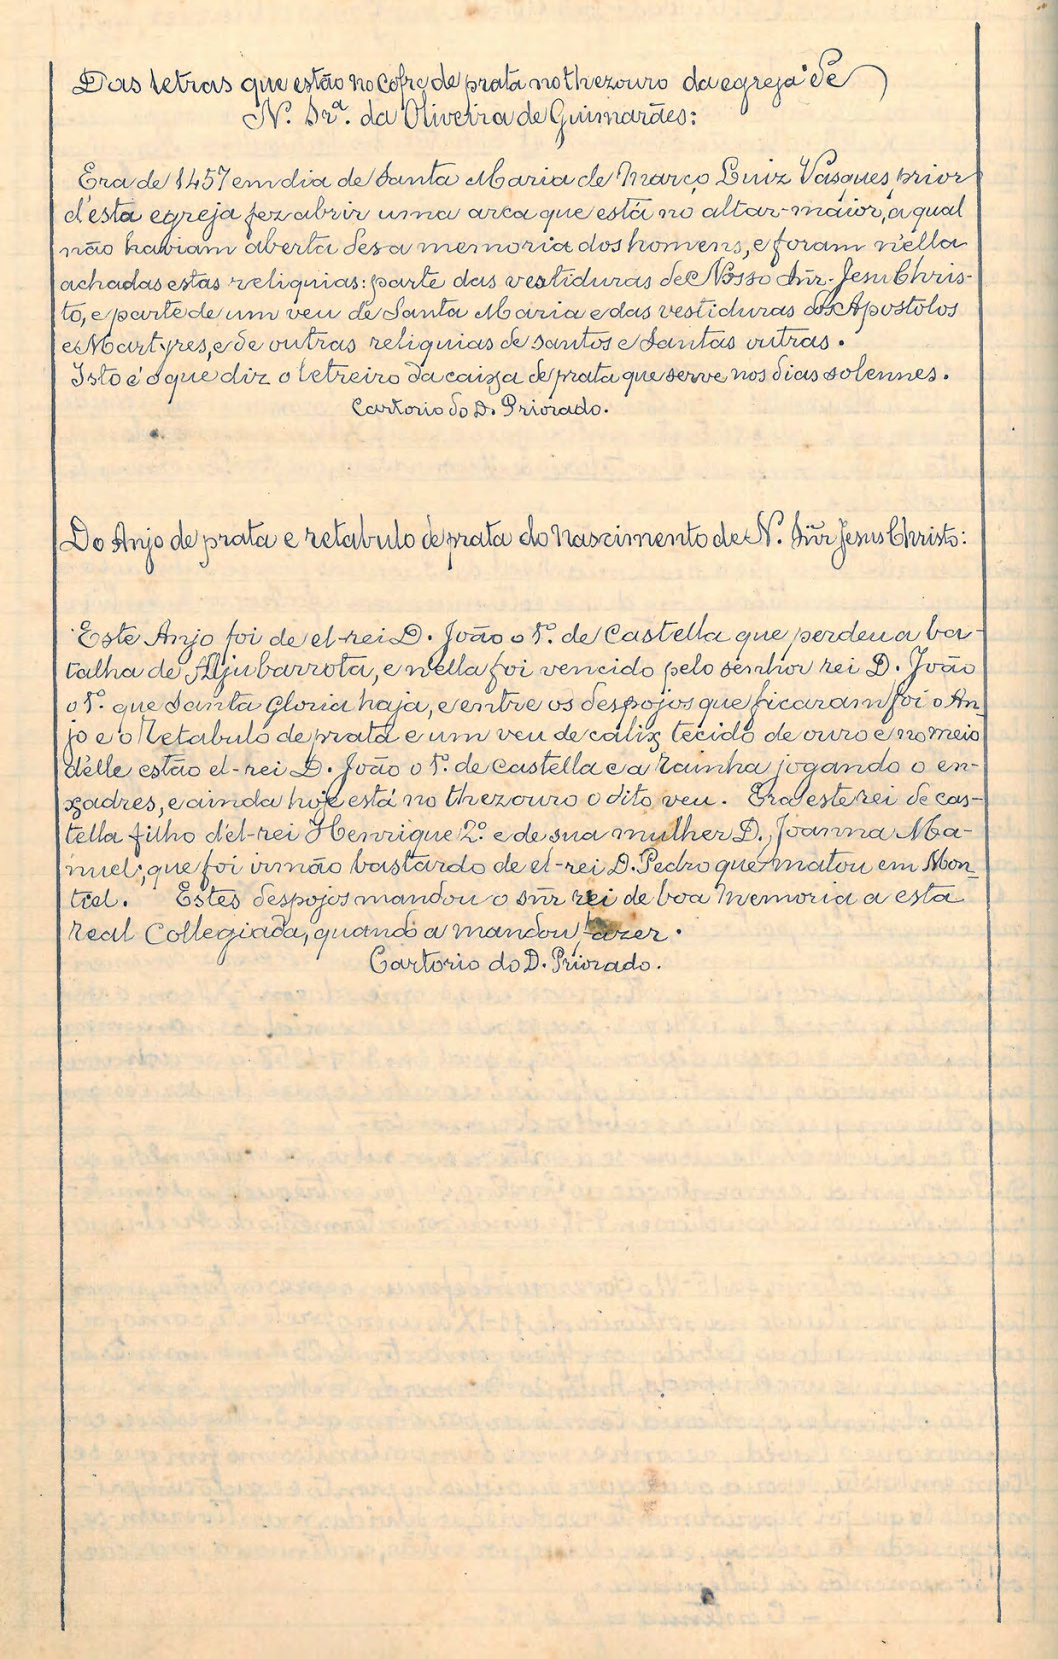 Das letras que estão no cofre de prata no thezouro da egreja de
N. Srª. da Oliveira de Guimarães:
Era de 1457 em dia de Santa Maria de Março Luiz Vasques, prior
d'esta egreja fez abrir uma arca que está no altar-maior, a qual
não haviam aberta des a memoria dos homens, e foram n'ella
achadas estas reliquias: parte das vestiduras de Nosso Snr. Jesu Chris-
to, e parte de um veu de Santa Maria e das vestiduras dos Apostolos
e Martyres, e de outras reliquias de santos e Santas outras.
Isto é o que diz o letreiro da caixa de prata que serve nos dias solennes.
Cartorio do D. Priorado.
Do Anjo de prata e retabulo de prata do Nascimento de N. Snr Jesus Christo:
Este Anjo foi de el-rei D. João o 1º. de Castella que perdeu a ba-
talha de Aljubarrota, e nella foi vencido pelo senhor rei D. João
o 1º. que Santa Gloria haja, e entre os despojos que ficaram foi o An-
jo e o Retabulo de prata e um veu de calix tecido de ouro e no meio
d'elle estão el-rei D. João o 1º. de Castella e a rainha jogando o en-
xadres, e ainda hoje está no thezouro o dito veu. Era este rei de Cas-
tella filho d'el-rei Henrique 2º. e de sua mulher D. Joanna Ma-
nuel, que foi irmão bastardo de el-rei D. Pedro que matou em Mon-
tiel. Estes despojos mandou o snr rei de boa memoria a esta
Real Collegiada, quando a mandou fazer.
Cartorio do D. Priorado.